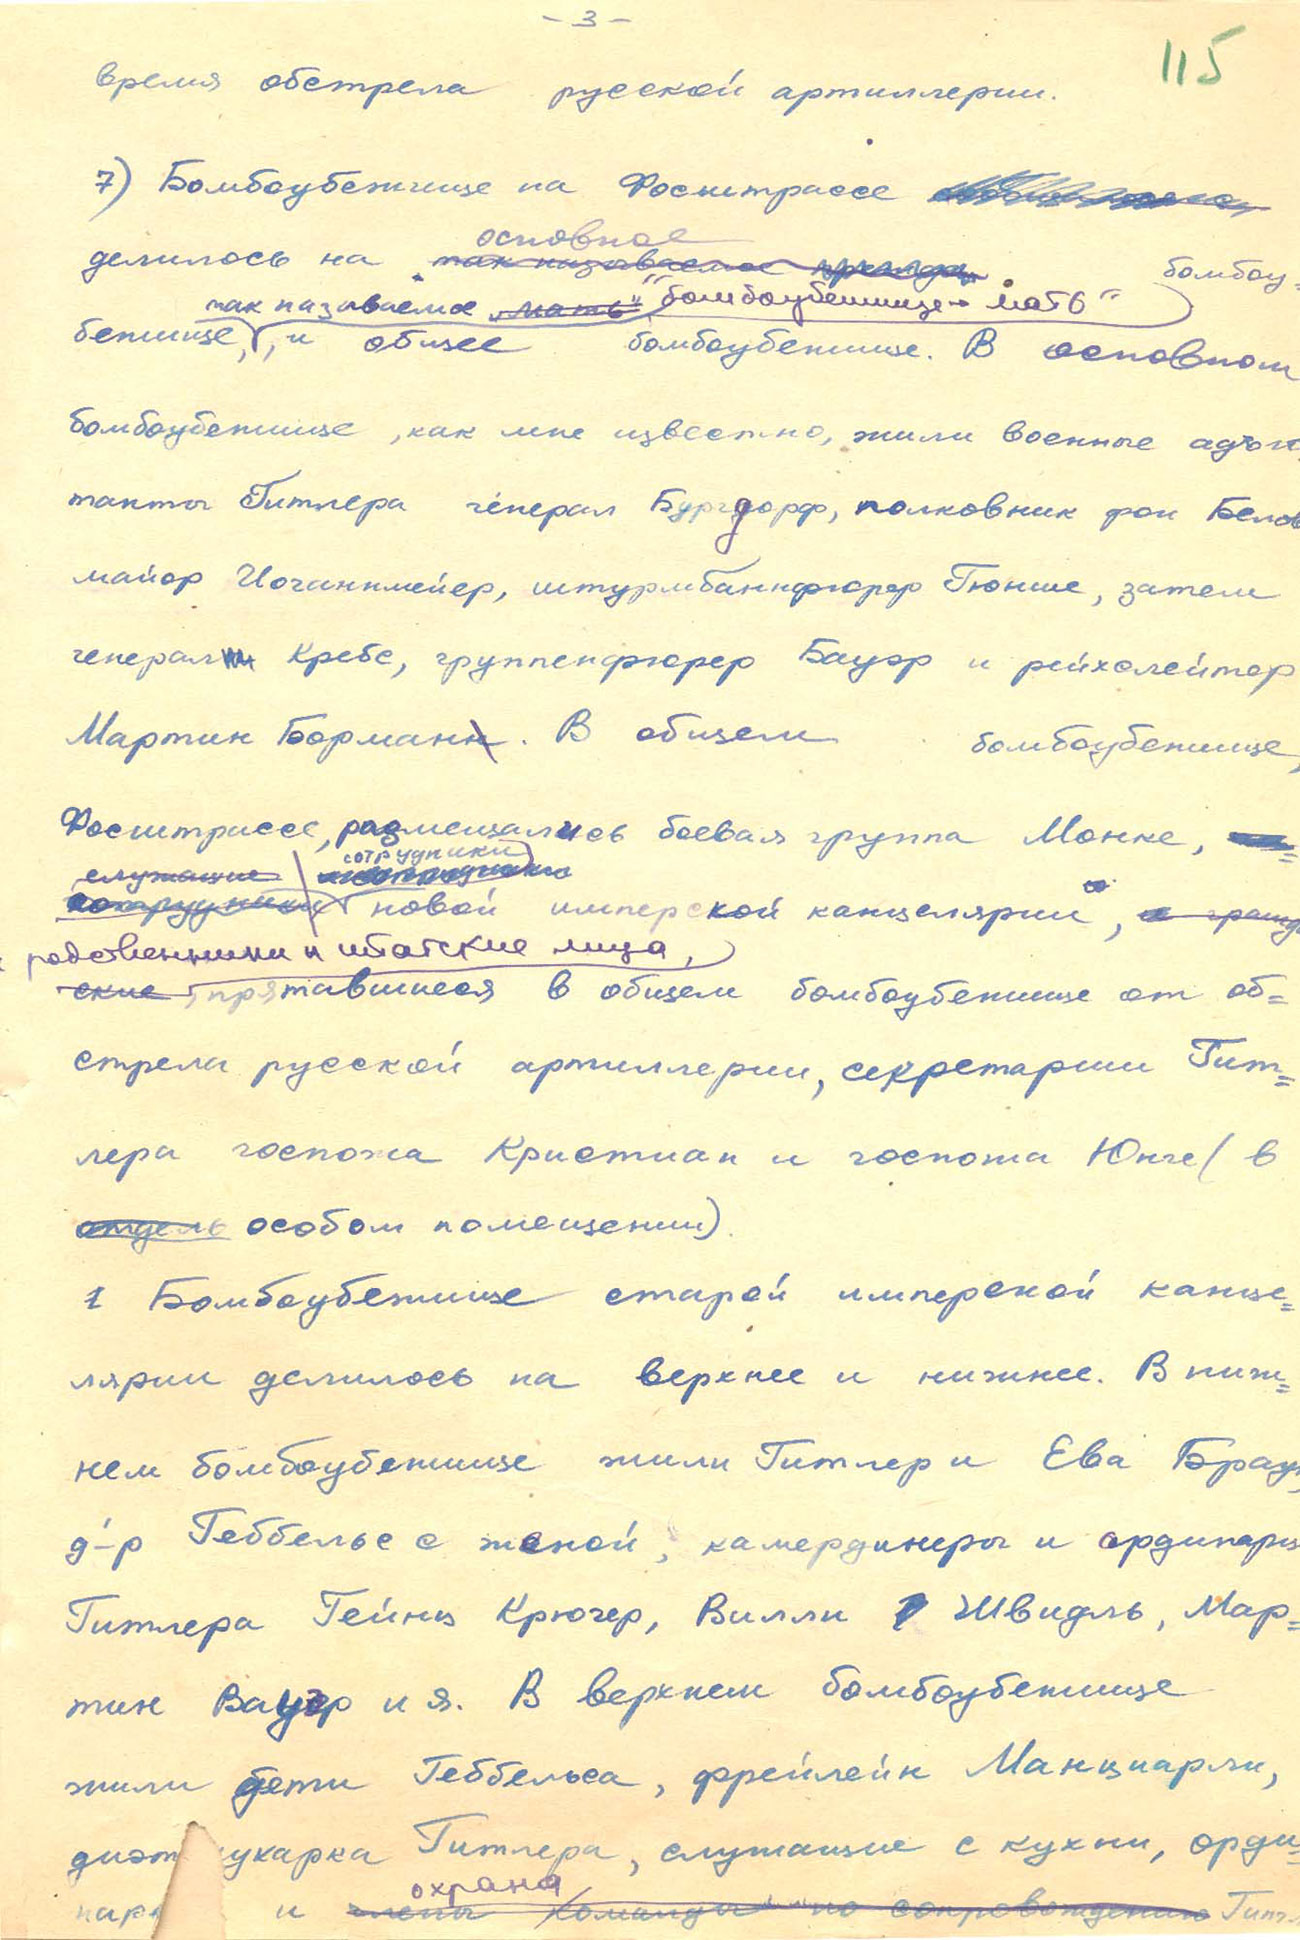 - 3 -
115
время обстрела русской артиллерии.
7) Бомбоубежище на Фосштрассе
основное
делилось на так называемое бомбоу=
так называемое „мать" "бомбоубежище - мать"
бежище, и общее бомбоубежище. В основном
бомбоубежище, как мне известно, жили военные адъю
танты Гитлера генерал Бургдорф, полковник фон Белов
майор Иоганнмейер, штурмбаннфюрер Гюнше, затем
генерал Кребс, группенфюрер Бауэр и рейхслейтер
Мартин Борман. В общем бомбоубежище,
Фосштрассе, размещались боевая группа Монке,
служащие сотрудники
сотрудники новой имперской канцелярии, со
родственники и штатские лица,
ские, прятавшиеся в общем бомбоубежище от об=
стрела русской артиллерии, секретарши Гит=
лера госпожа Кристиан и госпожа Юнге (в
отдель особом помещении).
1 Бомбоубежище старой имперской канце=
лярии делилось на верхнее и нижнее. В ниж=
нем бомбоубежище жили Гитлер и Ева Браун,
д-р Геббельс с женой, камердинеры и ординарц
Гитлера Гейнц Крюгер, Вилли Швидль, Мар=
тин Вауэр и я. В верхнем бомбоубежище
жили дети Геббельса, фрейлейн Манциарли,
диэт кухарка Гитлера, служащие с кухни, орди=
охрана
нар и члены команды по сопровождению Гитл